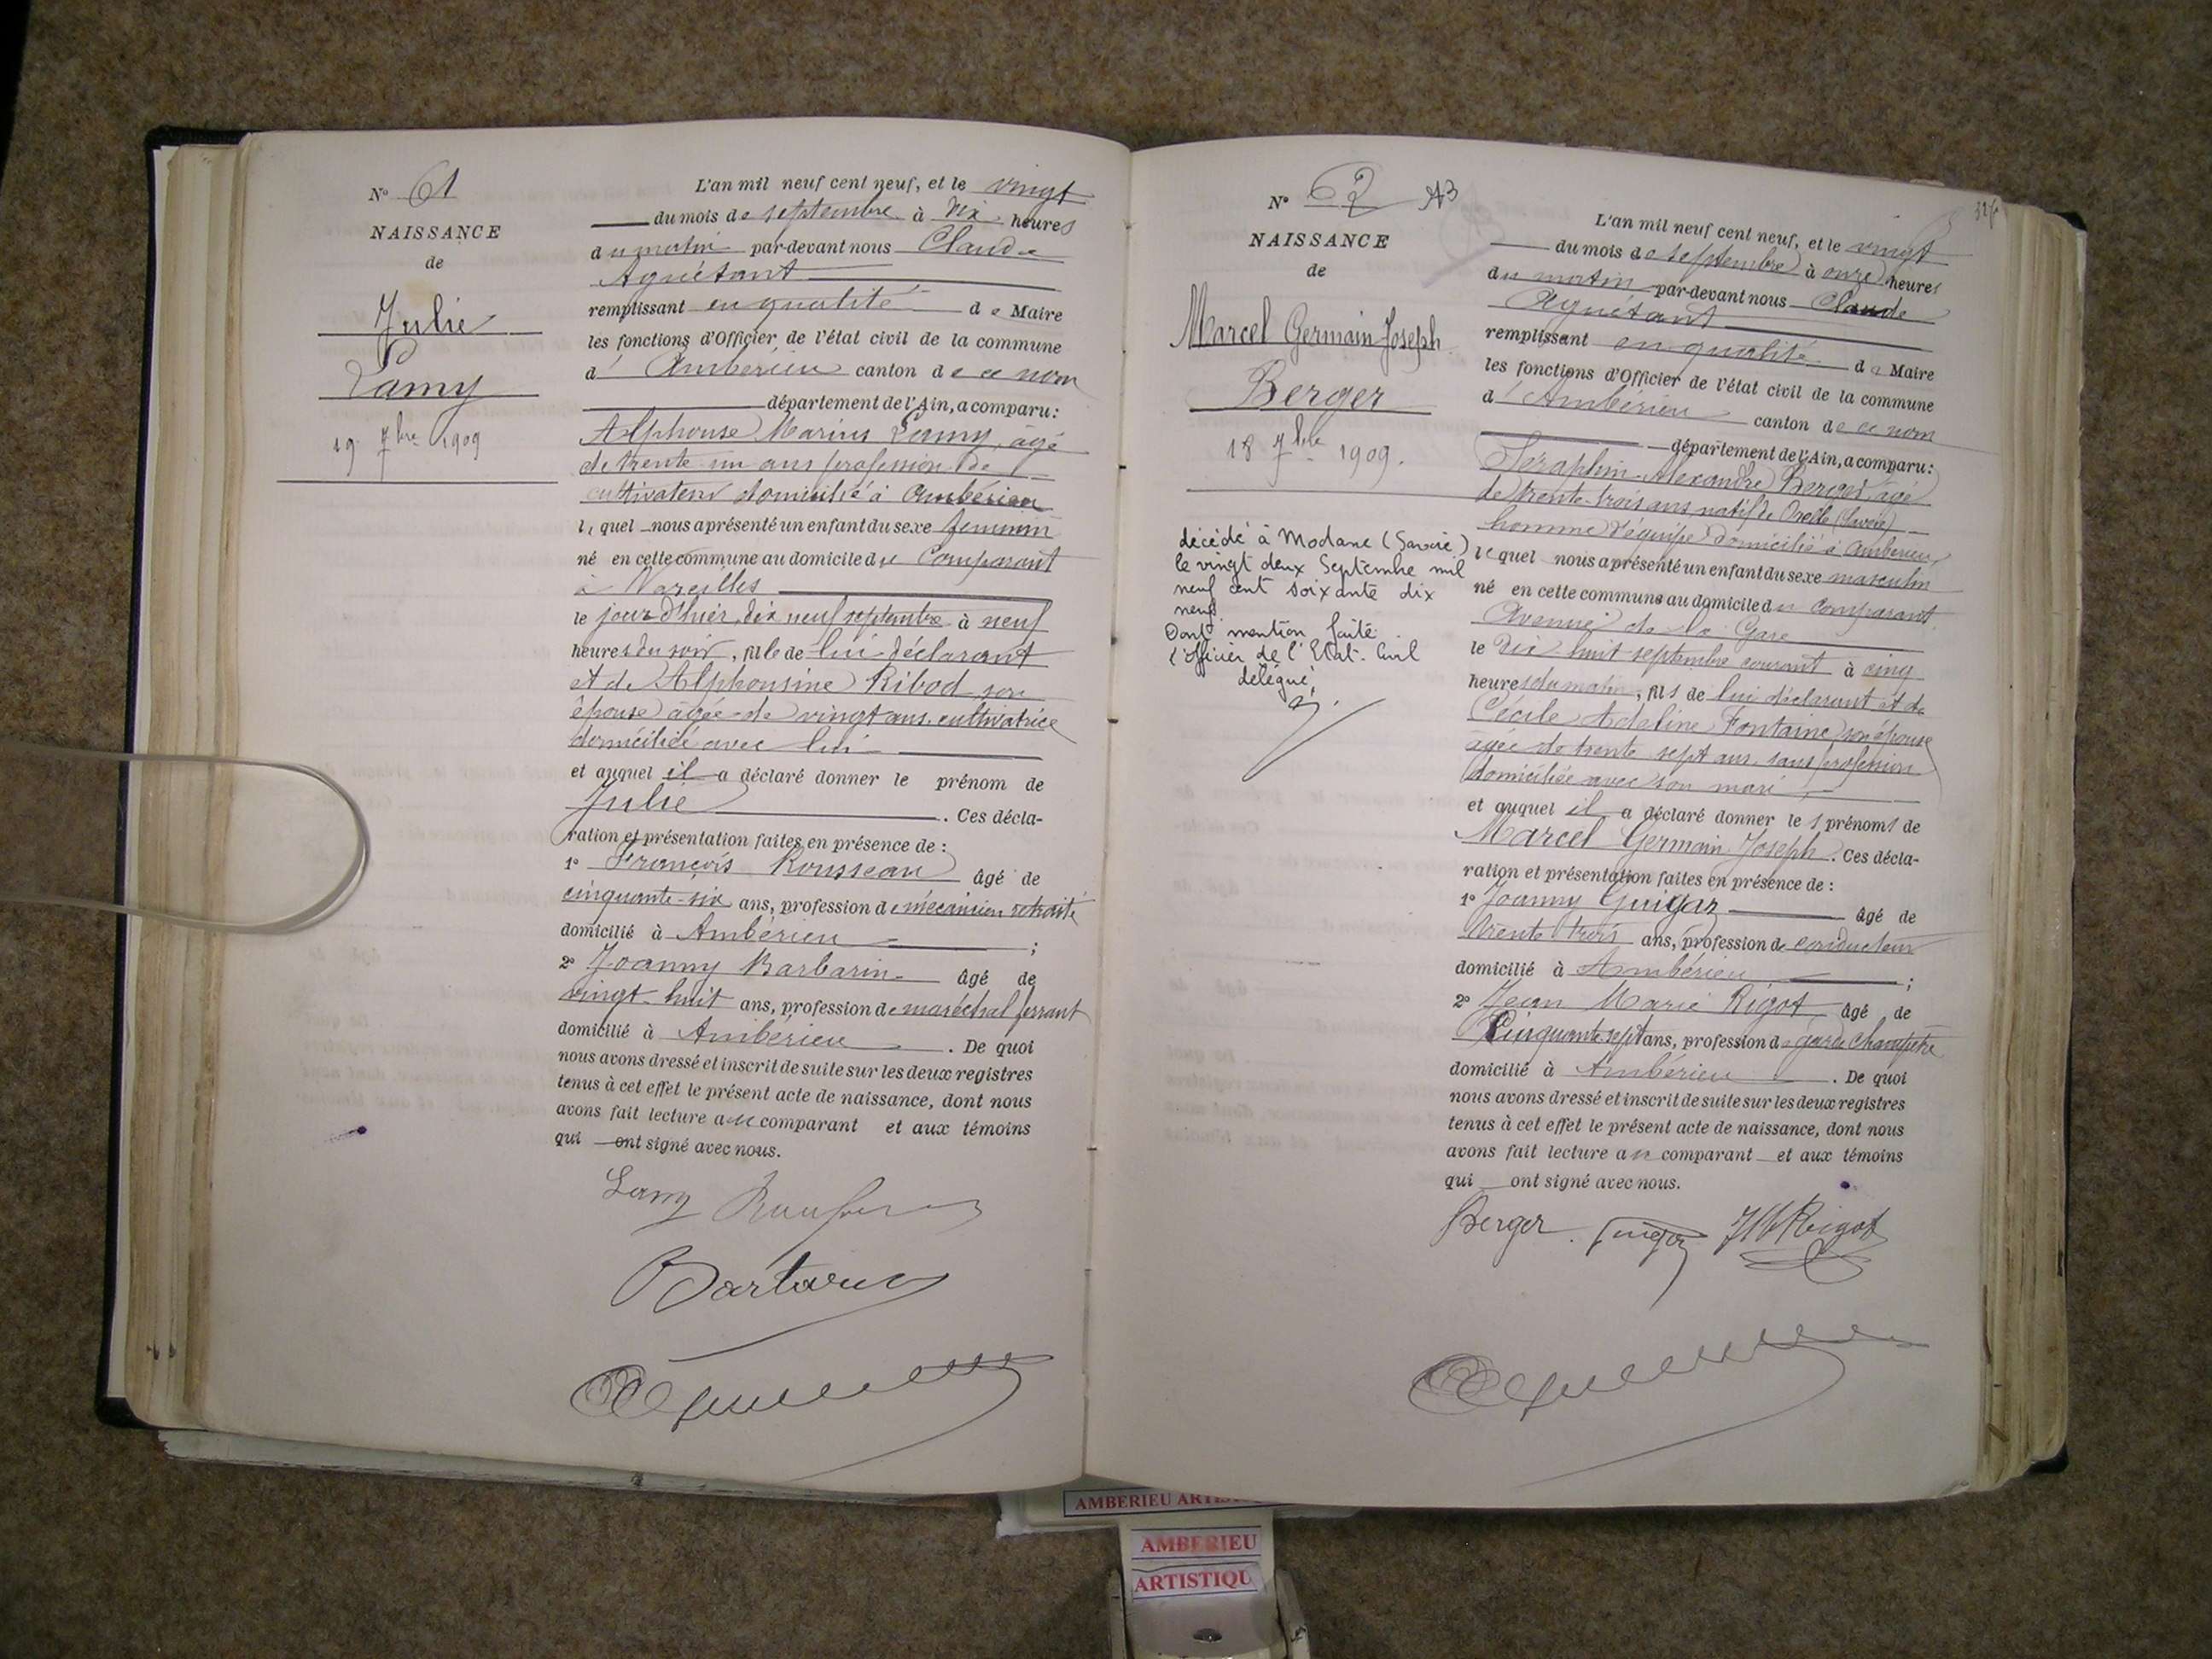 N° 61
NAISSANCE
de
Julie
Lamy
19 7bre 1909
L'an mil neuf cent neuf, et le vingt
du mois de septembre à dix heures
du matin par-devant nous Claude
Aguétant
remplissant en qualité de Maire
les fonctions d'Officier de l'état civil de la commune
d' Ambérieu canton de ce nom
département de l'Ain, a comparu :
Alphonse Marius Lamy, âgé
de trente un ans profession de
cultivateur domicilié à Ambérieu
lequel nous a présenté un enfant du sexe feminin
né en cette commune au domicile du Comparant
à Vareilles
le jour d'hier, dix neuf septembre à neuf
heures du soir, fille de lui déclarant
et de Alphonsine Ribod son
épouse âgée de vingt ans, cultivatrice
domiciliée avec lui
et auquel il a déclaré donner le prénom de
Julie . Ces décla-
ration et présentation faites en présence de :
1° François Rousseau âgé de
cinquante-six ans, profession de mécanicien retraité
domicilié à Ambérieu ;
2° Joanny Barbarin âgé de
vingt-huit ans, profession de maréchal ferrant
domicilié à Ambérieu . De quoi
nous avons dressé et inscrit de suite sur les deux registres
tenus à cet effet le présent acte de naissance, dont nous
avons fait lecture au comparant et aux témoins
qui ont signé avec nous.
Lamy
N° 62 AB
NAISSANCE
de
Marcel Germain Joseph
Berger
18 7bre 1909.
décédé à Modane (Savoie)
le vingt deux Septembre mil
neuf cent soixante dix
neuf
Dont mention faite
l'officier de l'Etat-Civil
délégué,
L'an mil neuf cent neuf, et le vingt
du mois de septembre à onze heures
du matin par-devant nous Claude
Aguétant
remplissant en qualité de Maire
les fonctions d'Officier de l'état civil de la commune
d' Ambérieu canton de ce nom
département de l'Ain, a comparu :
Séraphin-Alexandre Berger, âgé
de trente-trois ans natif de Orelle (Savoie)
homme d'équipe domicilié à Ambérieu,
lequel nous a présenté un enfant du sexe masculin
né en cette commune au domicile du comparant
Avenue de la Gare
le dix huit septembre courant à cinq
heures du matin, fils de lui déclarant et de
Cécile Adeline Fontaine, son épouse
âgée de trente sept ans, sans profession
domiciliée avec son mari
et auquel il a déclaré donner les prénoms de
Marcel Germain Joseph. Ces décla-
ration et présentation faites en présence de :
1° Joanny Guigaz âgé de
trente trois ans, profession de conducteur
domicilié à Ambérieu ;
2° Jean Marie Rigot âgé de
Cinquante sept ans, profession de garde champêtre
domicilié à Ambérieu . De quoi
nous avons dressé et inscrit de suite sur les deux registres
tenus à cet effet le présent acte de naissance, dont nous
avons fait lecture au comparant et aux témoins
qui ont signé avec nous.
Berger Guigaz JM Rigot
AMBERIEU
AMBERIEU
ARTISTIQU